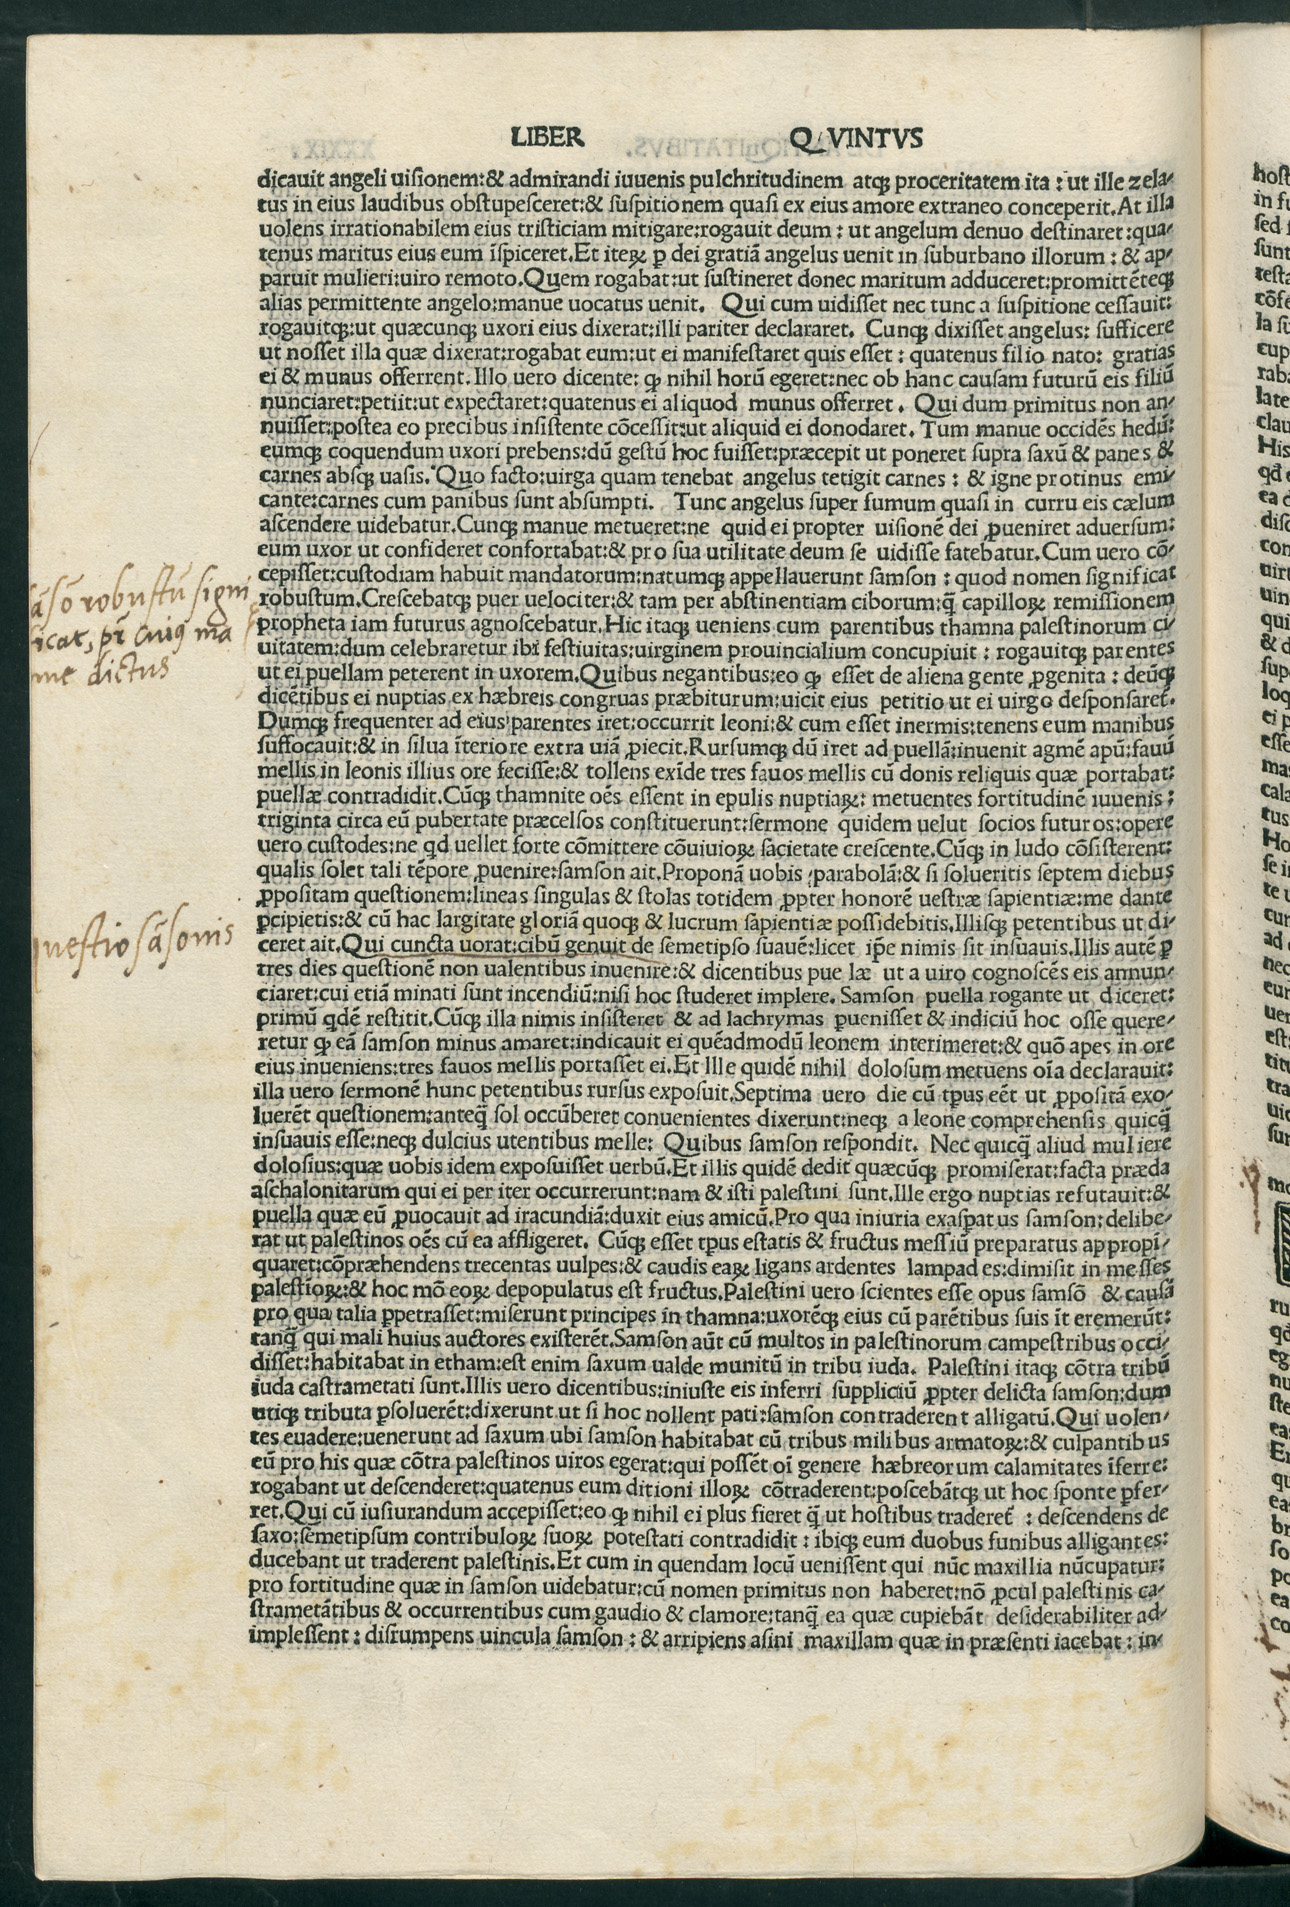 LIBER QVINTVS
dicauit angeli uisionem:& admirandi iuuenis pulchritudinem atqꝫ proceritatem ita : ut ille zela-
tus in eius laudibus obstupesceret:& suspitionem quasi ex eius amore extraneo conceperit.At illa
uolens irrationabilem eius tristiciam mitigare:rogauit deum : ut angelum denuo destinaret:qua-
tenus maritus eius eum īspiceret.Et iteꝝ ꝑ dei gratiā angelus uenit in suburbano illorum : & ap-
paruit mulieri:uiro remoto.Quem rogabat:ut sustineret donec maritum adduceret:promittēteqꝫ
alias permittente angelo:manue uocatus uenit. Qui cum uidisset nec tunc a suspitione cessauit:
rogauitqꝫ:ut quæcunqꝫ uxori eius dixerat:illi pariter declararet. Cunqꝫ dixisset angelus: sufficere
ut nosset illa quæ dixerat:rogabat eum:ut ei manifestaret quis esset : quatenus filio nato: gratias
ei & munus offerrent.Illo uero dicente: ꝙ nihil horū egeret:nec ob hanc causam futurū eis filiū
nunciaret:petiit:ut expectaret:quatenus ei aliquod munus offerret . Qui dum primitus non an-
nuisset:postea eo precibus insistente cōcessit:ut aliquid ei donodaret. Tum manue occidēs hedū:
eumqꝫ coquendum uxori prebens:dū gestū hoc fuisset:præcepit ut poneret supra saxū & panes &
carnes absqꝫ uasis. Quo facto:uirga quam tenebat angelus tetigit carnes : & igne protinus emi-
cante:carnes cum panibus sunt absumpti. Tunc angelus super fumum quasi in curru eis cælum
ascendere uidebatur.Cunqꝫ manue metueret:ne quid ei propter uisionē dei ꝓueniret aduersum:
eum uxor ut confideret confortabat:& pro sua utilitate deum se uidisse fatebatur.Cum uero cō-
cepisset:custodiam habuit mandatorum:natumqꝫ appellauerunt samson : quod nomen significat
robustum.Crescebatqꝫ puer uelociter:& tam per abstinentiam ciborum:q̄ capilloꝝ remissionem
propheta iam futurus agnoscebatur.Hic itaqꝫ ueniens cum parentibus thamna palestinorum ci-
uitatem:dum celebraretur ibi festiuitas:uirginem prouincialium concupiuit : rogauitqꝫ parentes
ut ei puellam peterent in uxorem.Quibus negantibus:eo ꝙ esset de aliena gente ꝓgenita : deūqꝫ
dicētibus ei nuptias ex hæbreis congruas præbiturum:uicit eius petitio ut ei uirgo desponsaret.
Dumqꝫ frequenter ad eius parentes iret:occurrit leoni:& cum esset inermis:tenens eum manibus
suffocauit:& in silua īteriore extra uiā ꝓiecit.Rursumqꝫ dū iret ad puellā:inuenit agmē apū:fauū
mellis in leonis illius ore fecisse:& tollens exīde tres fauos mellis cū donis reliquis quæ portabat:
puellæ contradidit.Cūqꝫ thamnite oēs essent in epulis nuptiaꝝ: metuentes fortitudinē iuuenis :
triginta circa eū pubertate præcelsos constituerunt:sermone quidem uelut socios futuros:opere
uero custodes:ne qd uellet forte cōmittere cōuiuioꝝ sacietate crescente.Cūqꝫ in ludo cōsisterent:
qualis solet tali tēpore ꝓuenire:samson ait.Proponā uobis parabolā:& si solueritis septem diebus
ꝓpositam questionem:lineas singulas & stolas totidem ꝓpter honorē uestræ sapientiæ:me dante
ꝑcipietis:& cū hac largitate gloriā quoqꝫ & lucrum sapientiæ possidebitis.Illisqꝫ petentibus ut di-
ceret ait.Qui cuncta uorat:cibū genuit de semetipso suauē:licet ip̄e nimis sit insuauis.Illis autē ꝑ
tres dies questionē non ualentibus inuenire:& dicentibus puellæ ut a uiro cognoscēs eis annun-
ciaret:cui etiā minati sunt incendiū:nisi hoc studeret implere. Samson puella rogante ut diceret:
primū qdē restitit.Cūqꝫ illa nimis insisteret & ad lachrymas ꝑuenisset & indiciū hoc osse quere-
retur ꝙ eā samson minus amaret:indicauit ei quēadmodū leonem interimeret:& quō apes in ore
eius inueniens:tres fauos mellis portasset ei.Et Ille quidē nihil dolosum metuens oīa declarauit:
illa uero sermonē hunc petentibus rursus exposuit.Septima uero die cū tp̄us eēt ut ꝓpositā exo-
luerēt questionem:anteq̄ sol occūberet conuenientes dixerunt:neqꝫ a leone comprehensis quicq̄
insuauis esse:neqꝫ dulcius utentibus melle: Quibus samson respondit. Nec quicq̄ aliud muliere
dolosius:quæ uobis idem exposuisset uerbū.Et illis quidē dedit quæcūqꝫ promiserat:facta præda
aschalonitarum qui ei per iter occurrerunt:nam & isti palestini sunt.Ille ergo nuptias refutauit:&
puella quæ eū ꝓuocauit ad iracundiā:duxit eius amicū.Pro qua iniuria exasꝑatus samson:delibe-
rat ut palestinos oēs cū ea affligeret. Cūqꝫ esset tp̄us estatis & fructus messiū preparatus appropī-
quaret:cōpræhendens trecentas uulpes:& caudis eaꝝ ligans ardentes lampades:dimisit in messes
palestīoꝝ:& hoc mō eoꝝ depopulatus est fructus.Palestini uero scientes esse opus samsō & causā
pro qua talia ꝑpetrasset:miserunt principes in thamna:uxorēqꝫ eius cū parētibus suis īt eremerūt:
tanq̄ qui mali huius auctores existerēt.Samson aūt cū multos in palestinorum campestribus occi-
disset:habitabat in etham:est enim saxum ualde munitū in tribu iuda. Palestini itaqꝫ cōtra tribū
iuda castrametati sunt.Illis uero dicentibus:iniuste eis inferri suppliciū ꝓpter delicta samson:dum
utiqꝫ tributa ꝑsoluerēt:dixerunt ut si hoc nollent pati:samson contraderent alligatū.Qui uolen-
tes euadere:uenerunt ad saxum ubi samson habitabat cū tribus milibus armatoꝝ:& culpantibus
eū pro his quæ cōtra palestinos uiros egerat:qui possēt oī genere hæbreorum calamitates īferre:
rogabant ut descenderet:quatenus eum ditioni illoꝝ cōtraderent:poscebātqꝫ ut hoc sponte ꝑfer-
ret.Qui cū iusiurandum accepisset:eo ꝙ nihil ei plus fieret q̄ ut hostibus traderet : descendens de
saxo:semetipsum contribuloꝝ suoꝝ potestati contradidit : ibiqꝫ eum duobus funibus alligantes:
ducebant ut traderent palestinis.Et cum in quendam locū uenissent qui nūc maxillia nūcupatur:
pro fortitudine quæ in samson uidebatur:cū nomen primitus non haberet:nō ꝓcul palestinis ca-
strametātibus & occurrentibus cum gaudio & clamore:tanq̄ ea quæ cupiebāt desiderabiliter ad-
implessent : disrumpens uincula samson : & arripiens asini maxillam quæ in præsenti iacebat : in-
sāsō robustū signi
icat, pr̄ cuiꝯ ma
nue dictus
uestio sāsonis